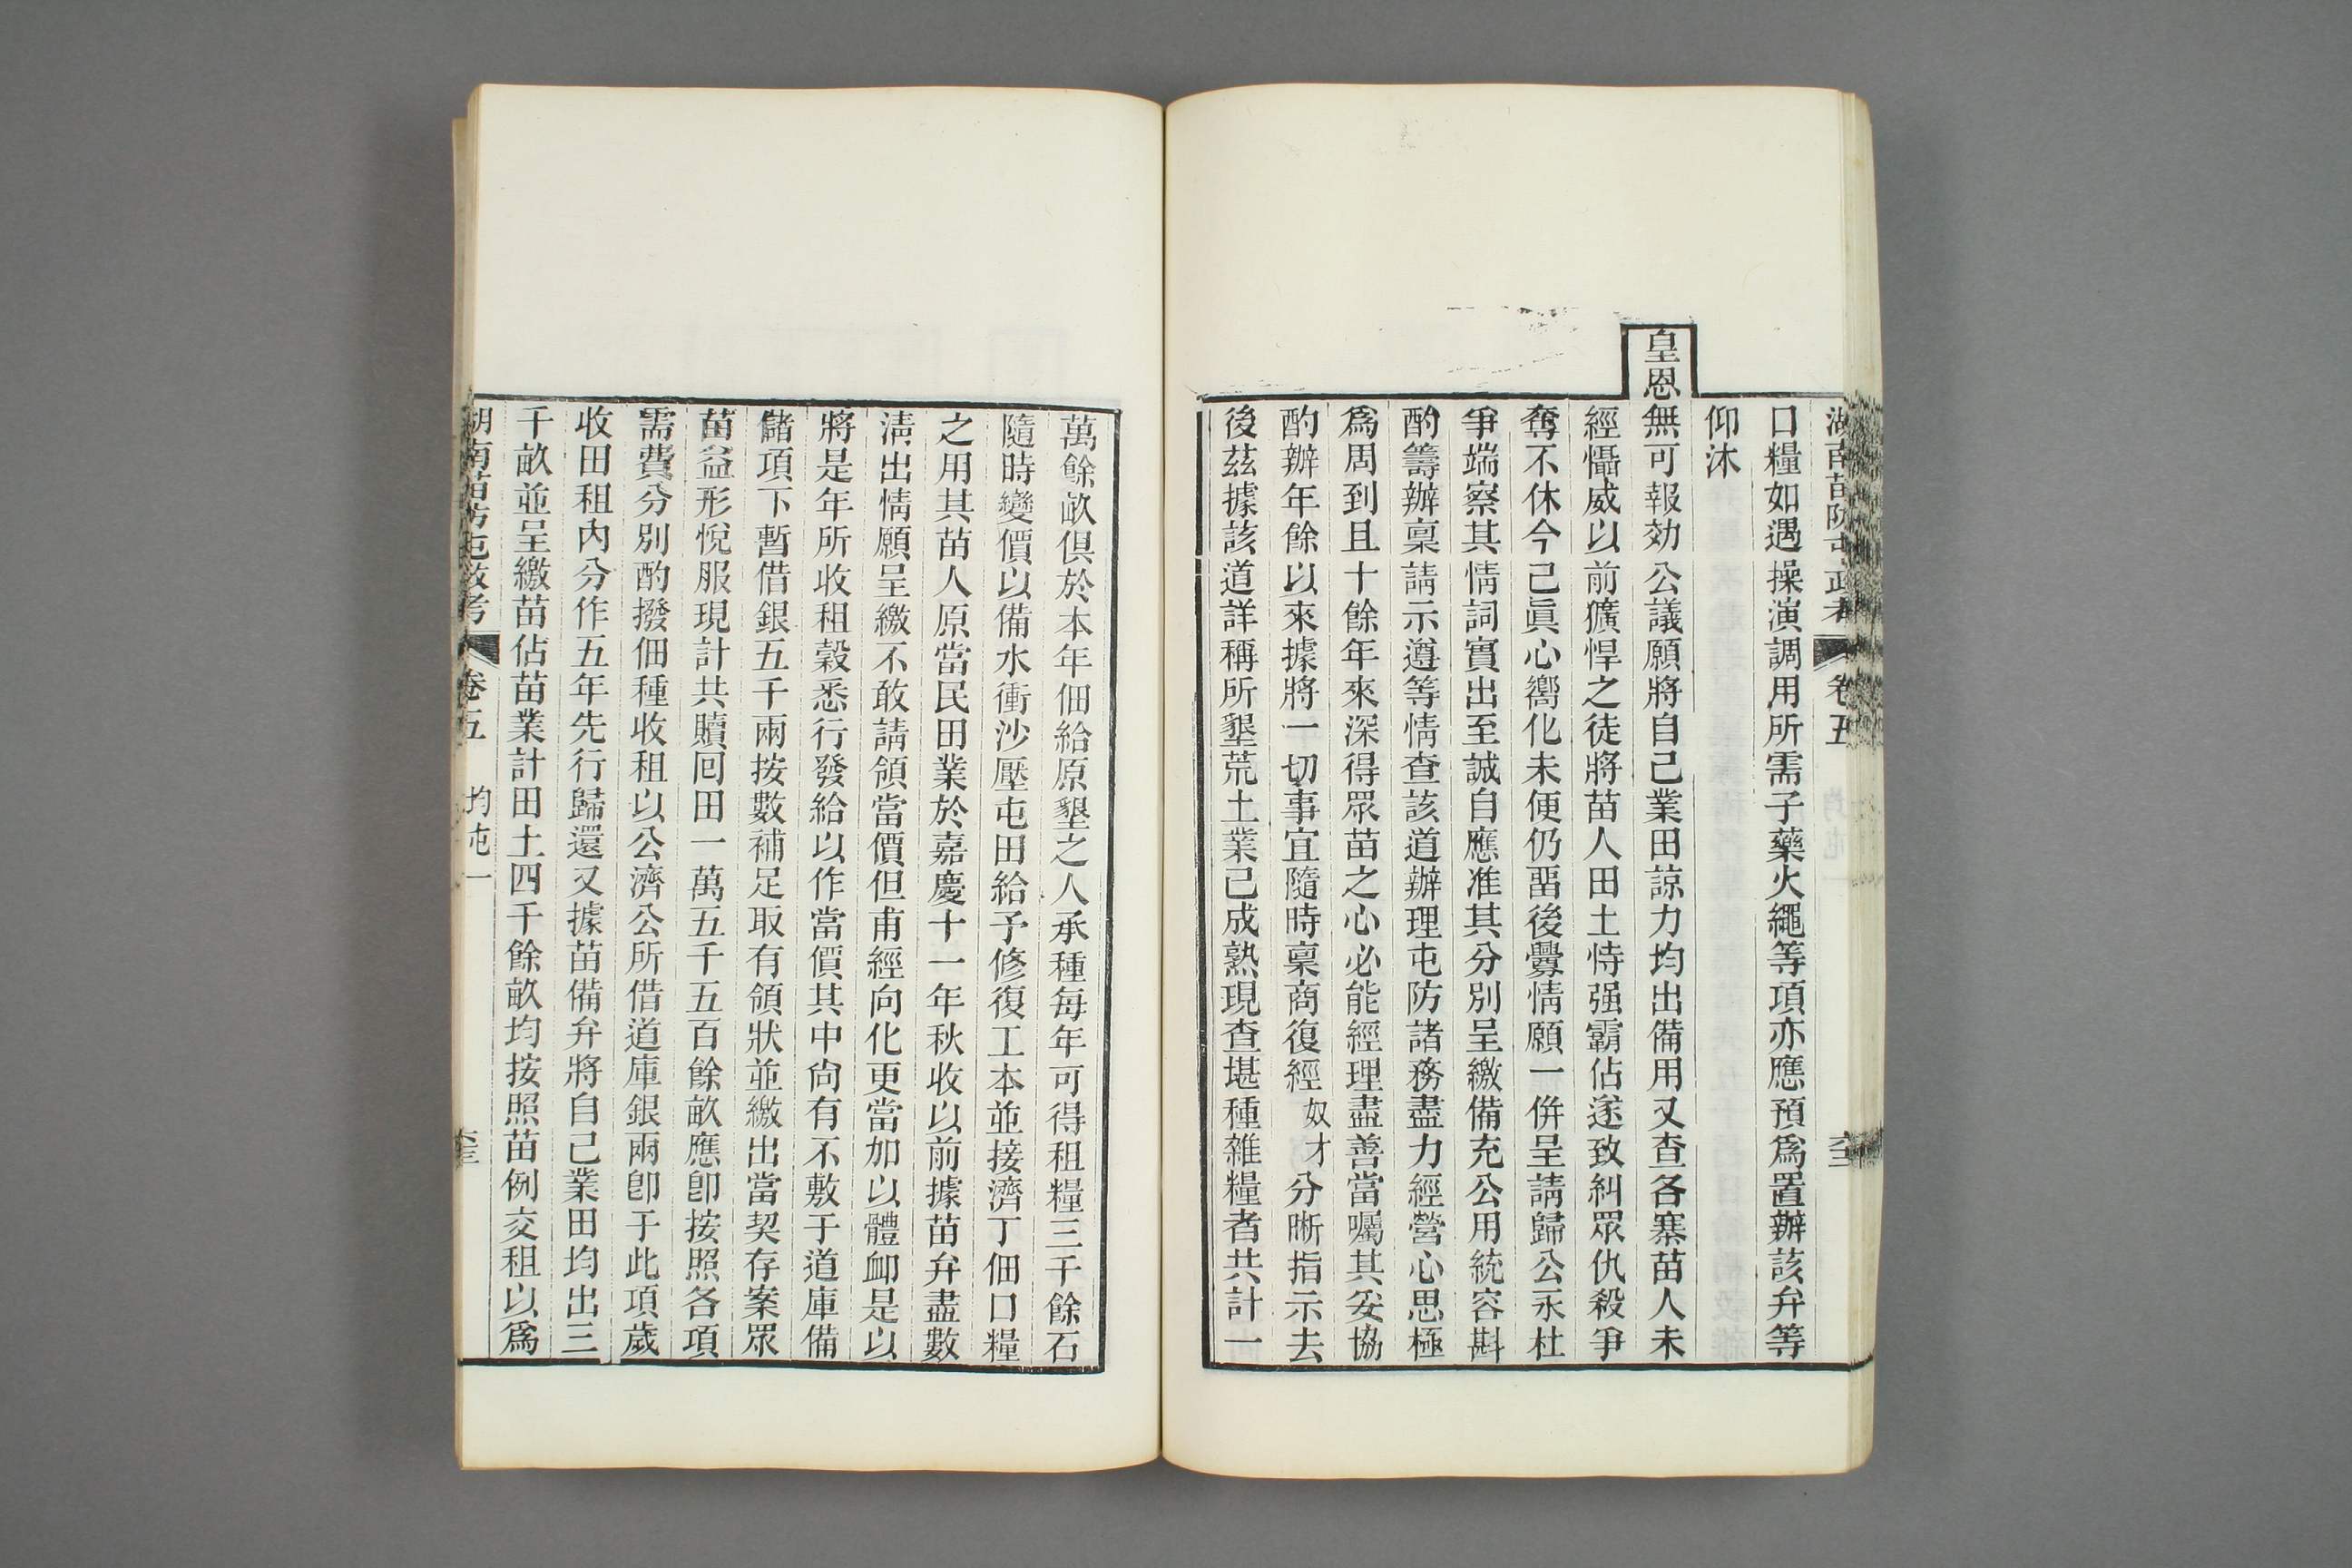 湖南苗防屯政考 卷五
口糧如遇操演調用所需子藥火繩等項亦應預爲置辦該弁等
仰沐
皇恩無可報効公議願將自己業田諒力均出備用又查各寨苗人未
經懾威以前獷悍之徒將苗人田土恃强霸佔遂致糾眾仇殺爭
奪不休今己眞心嚮化未便仍畱後釁情願一併呈請歸公永杜
爭端察其情詞實出至誠自應准其分別呈繳備充公用統容斟
酌籌辦稟請示遵等情查該道辦理屯防諸務盡力經營心思極
爲周到且十餘年來深得眾苗之心必能經理盡善當囑其妥協
酌辦年餘以來據將一切事宜隨時稟商復經奴才分晰指示去
後茲據該道詳稱所墾荒土業己成熟現查堪種雜糧者共計一
萬餘畝俱於本年佃給原墾之人承種每年可得租糧三千餘石
隨時變價以備水衝沙壓屯田給予修復工本並接濟丁佃口糧
之用其苗人原當民田業於嘉慶十一年秋收以前據苗弁盡數
淸出情願呈繳不敢請領當價但甫經向化更當加以體卹是以
將是年所收租穀悉行發給以作當價其中尙有不敷于道庫備
儲項下暫借銀五千兩按數補足取有領狀並繳出當契存案眾
苗益形悅服現計共贖回田一萬五千五百餘畝應卽按照各項
需費分別酌撥佃種收租以公濟公所借道庫銀兩卽于此項歲
收田租內分作五年先行歸還又據苗備弁將自己業田均出三
千畝並呈繳苗佔苗業計田土四千餘畝均按照苗例交租以爲
湖南苗防屯政考 卷五 均屯一